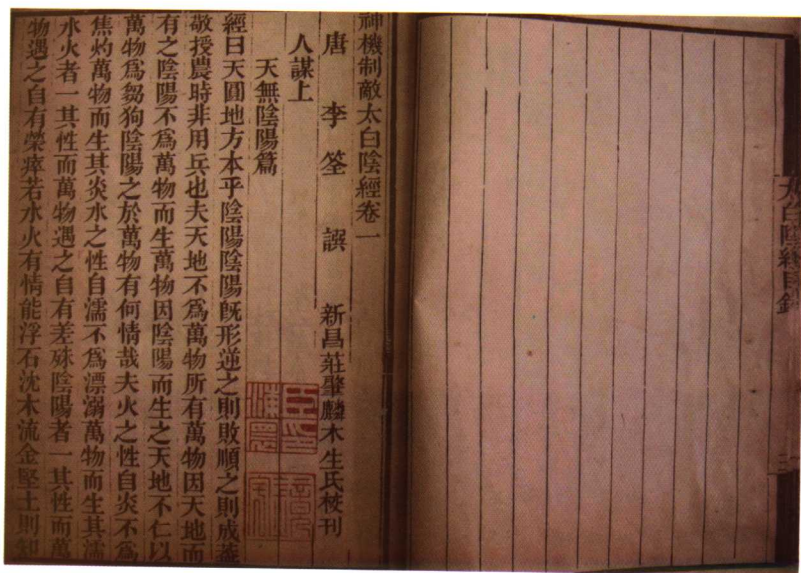 太白陰經目錄
神機制敵太白陰經卷一
唐 李 筌 譔 新昌莊肇麟木生氏校刊
人謀上
天無陰陽篇
經曰天圓地方本乎陰陽陰陽旣形逆之則敗順之則成蓋
敬授農時非用兵也夫天地不爲萬物所有萬物因天地而
有之陰陽不爲萬物而生萬物因陰陽而生之天地不仁以
萬物爲芻狗陰陽之於萬物有何情哉夫火之性自炎不爲
焦灼萬物而生其炎水之性自濡不爲漂溺萬物而生其濡
水火者一其性而萬物遇之自有差殊陰陽者一其性而萬
物遇之自有榮瘁若水火有情能浮石沈木流金堅土則知